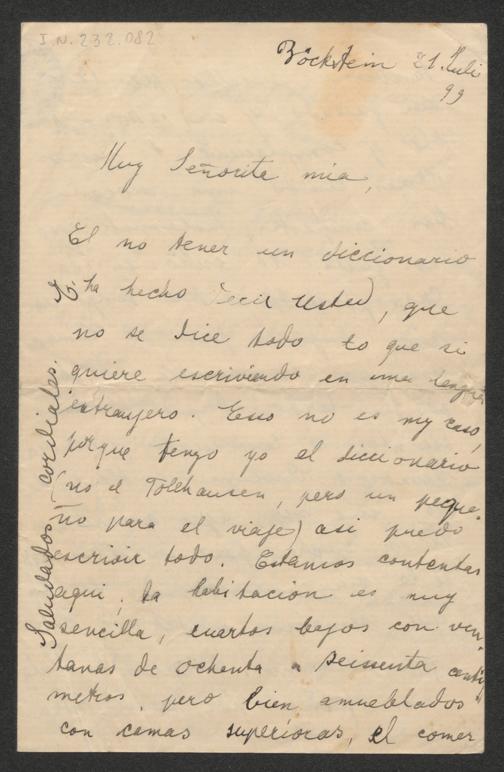 I.N. 232.082
Böckstein 21. Juli
99
Muy Señorita mia,
El no tener un diccionario
ha hecho decir Usted, que
no se dice todo lo que si
quiere escriviendo en una lengua
extranjero. Esso no es my caso,
porque tengo yo el diccionario
(no el Tollhausen, pero un peque-
no para el viaje) asi puedo
escrivir todo. Estamos contentas
aqui, la habitación es muy
sencilla, cuartos bajos con ven-
tanas de ochenta a seissenta centi
metros, pero bien amueblados
con camas superioras, el comer
Saludados cordiales.